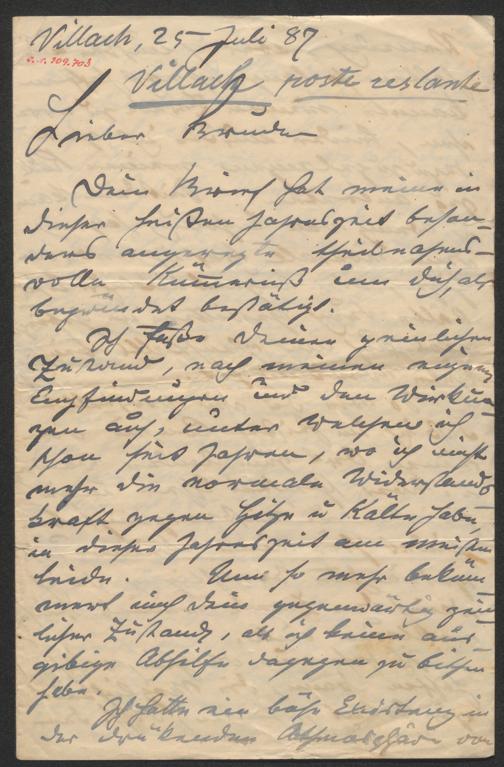 Villach, 25 Juli 87
Villach poste restante
Lieber Bruder
Dein Brief hat meine in
dieser heißen Jahreszeit beson-
ders angeregte theilnahms-
volle Kümmerniß um dich, als
begründet bestätigt.
Ich faße deinen peinlichen
Zustand, nach meinen eigenen
Empfindungen und den Wirkun
gen auf, unter welchen ich
schon seit Jahren, wo ich nicht
mehr die normale Widerstands
kraft gegen Hitze u Kälte habe,
in dieser Jahreszeit am meisten
leide. Um so mehr beküm
mert mich dein gegenwärtig pein
licher Zustand, als ich keine aus
gibige Abhilfe dagegen zu bieten
habe.
Ich hatte eine böse Existenz in
der drückenden Athmosphäre von